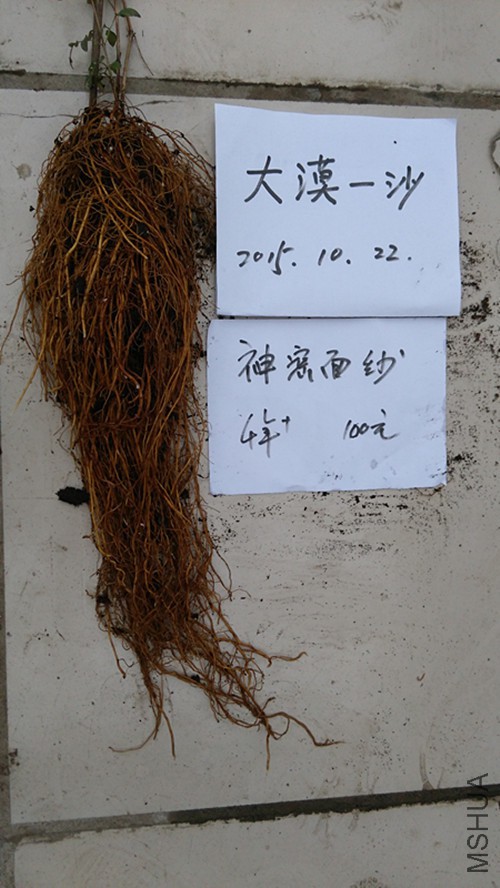 大漠一沙
2015. 10. 22.
神密面纱
4年+ 100元
MSHUA